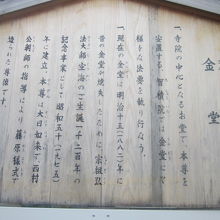 金堂
一、寺院の中心となるお堂で、本尊を
安置する。智積院では金堂にて
様々な法要を執り行なう。
一、現在の金堂は明治十五(一八八二)年に
昔の金堂が焼失したために、宗祖弘
法大師空海のご生誕一千二百年の
記念事業にして昭和五十(一九七五)
年に建立。本尊は大日如来で、西村
公朝師の指導により藤原様式で
造られた尊像です。